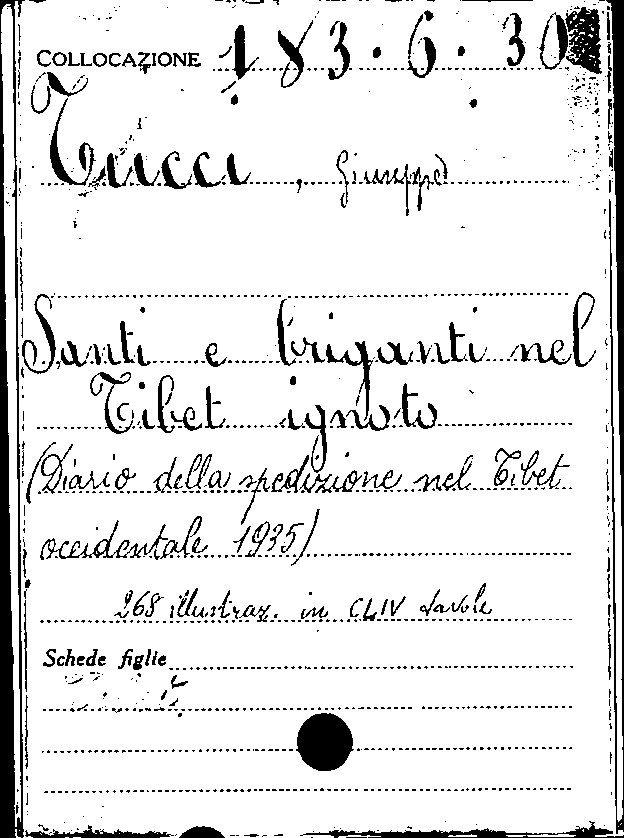 COLLOCAZIONE 183.6.30
Tucci, Giuseppe
Santi e briganti nel
Tibet ignoto
(Diario della spedizione nel Tibet
occidentale 1935)
268 illustraz. in CLIV tavole
Schede figlie